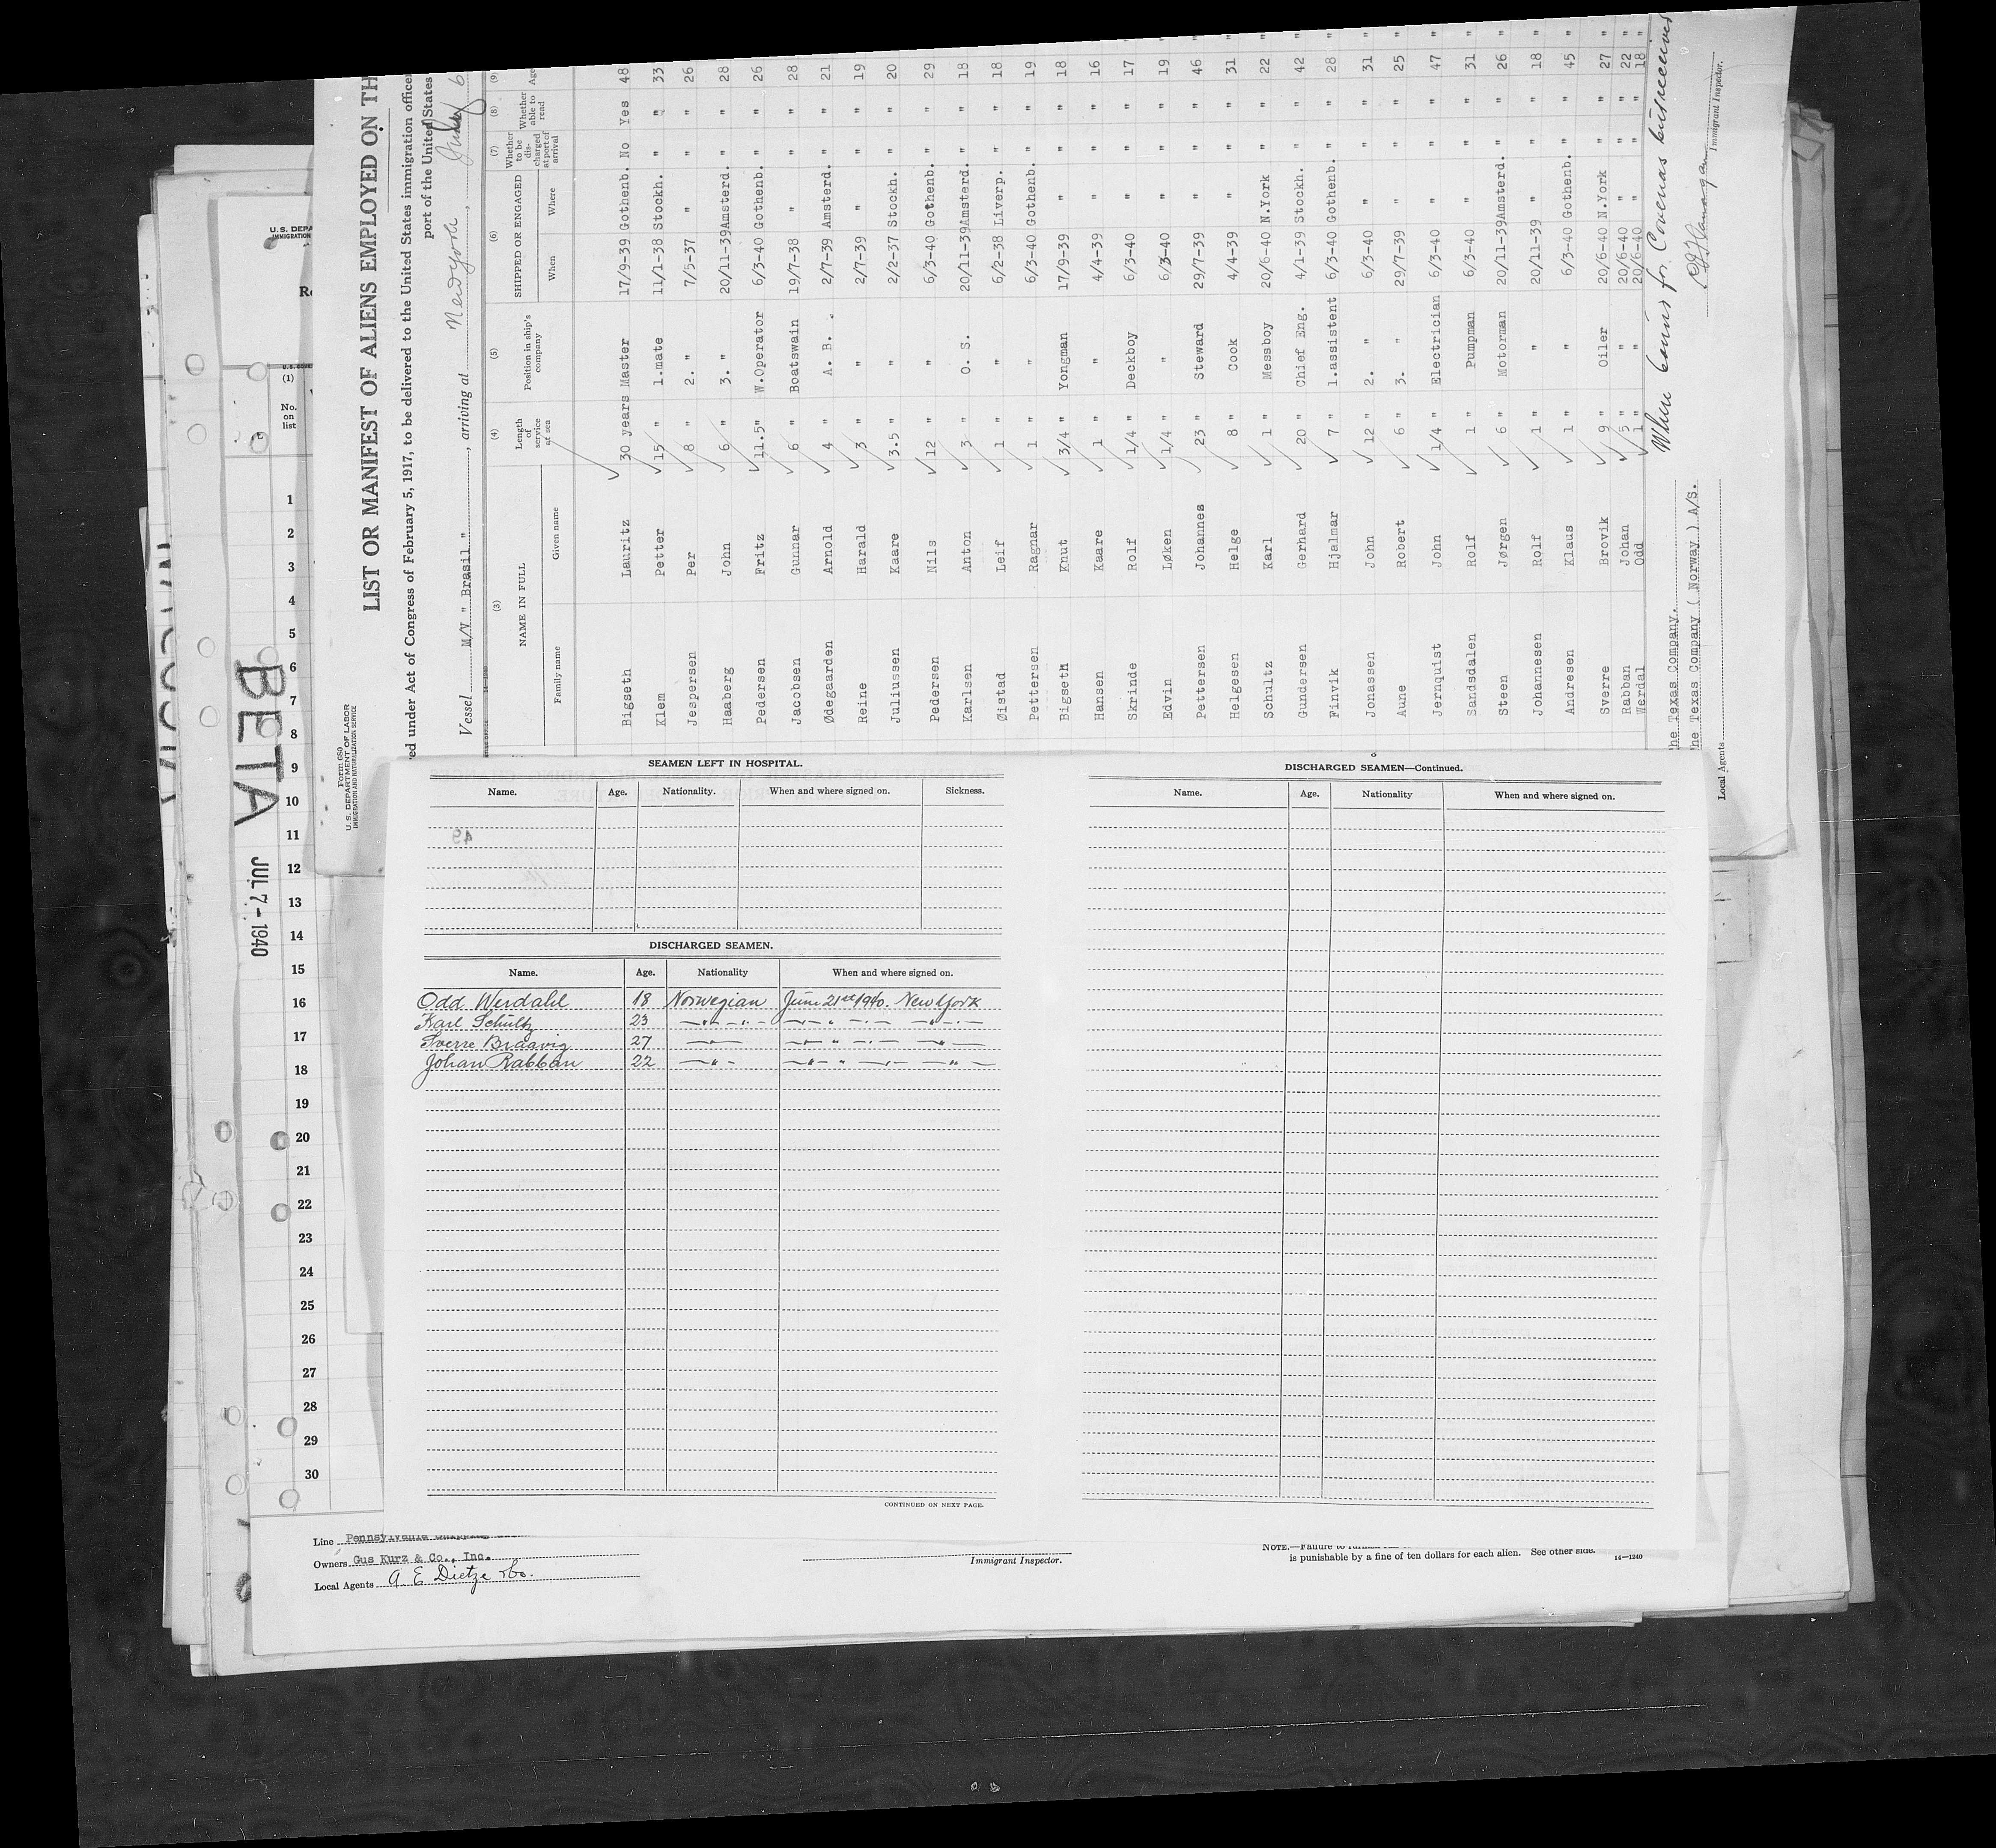 Form 680
U. S. DEPARTMENT OF LABOR
IMMIGRATION AND NATURALIZATION SERVICE
LIST OR MANIFEST OF ALIENS EMPLOYED ON TH
ed under Act of Congress of February 5, 1917, to be delivered to the United States immigration officer
port of the United States
Vessel M/V " Brasil " , arriving at Newyork , July 6
(3) (4) (5) (6) (7) (8) (9)
NAME IN FULL Length of service at sea Position in ship's company SHIPPED OR ENGAGED Whether to be discharged at port of arrival Whether able to read Age
Family name Given name When Where
Bigseth Lauritz 30 years Master 17/9-39 Gothenb. No Yes 48
Klem Petter 15 " 1.mate 11/1-38 Stockh. " " 33
Jespersen Per 8 " 2. " 7/5-37 " " " 26
Haaberg John 6 " 3. " 20/11-39 Amsterd. " " 28 "
Pedersen Fritz 11.5" W.Operator 6/3-40 Gothenb. " " 26 "
Jacobsen Gunnar 6 " Boatswain 19/7-38 " " " 28 "
Ødegaarden Arnold 4 " A. B. 2/7-39 Amsterd. " " 21 "
Reine Harald 3 " " 2/7-39 " " " 19 "
Juliussen Kaare 3.5 " " 2/2-37 Stockh. " " 20 "
Pedersen Nils 12 " " 6/3-40 Gothenb. " " 29 "
Karlsen Anton 3 " O. S. 20/11-39 Amsterd. " " 18 "
Øistad Leif 1 " " 6/2-38 Liverp. " " 18 "
Pettersen Ragnar 1 " " 6/3-40 Gothenb. " " 19 "
Bigseth Knut 3/4 " Yongman 17/9-39 " " " 18 "
Hansen Kaare 1 " " 4/4-39 " " " 16 "
Skrinde Rolf 1/4 " Deckboy 6/3-40 " " " 17 "
Edvin Løken 1/4 " " 6/3-40 " " " 19 "
Pettersen Johannes 23 " Steward 29/7-39 " " " 46 "
Helgesen Helge 8 " Cook 4/4-39 " " " 31 "
Schultz Karl 1 " Messboy 20/6-40 N.York " " 22 "
Gundersen Gerhard 20 " Chief Eng. 4/1-39 Stockh. " " 42 "
Finvik Hjalmar 7 " 1.assistent 6/3-40 Gothenb. " " 28 "
Jonassen John 12 " 2. " 6/3-40 " " " 31 "
Aune Robert 6 " 3. " 29/7-39 " " " 25 "
Jernquist John 1/4 " Electrician 6/3-40 " " " 47 "
Sandsdalen Rolf 1 " Pumpman 6/3-40 " " " 31 "
Steen Jørgen 6 " Motorman 20/11-39 Amsterd. " " 26 "
Johannesen Rolf 1 " " 20/11-39 " " " 18 "
Andresen Klaus 1 " " 6/3-40 Gothenb. " " 45 "
Sverre Brovik 9 " Oiler 20/6-40 N.York " " 27 "
Rabban Johan 5 " " 20/6-40 " " " 22 "
Werdal Odd 1 " " 20/6-40 " " " 18 "
he Texas Company.
he Texas Company ( Norway ) A/S.
Local Agents
Immigrant Inspector.
U.S. DEPA
IMMIGRATION
(1)
No. on list
BETA
JUL 7 - 1940
1
2
3
4
5
6
7
8
9
10
11
12
13
14
15
16
17
18
19
20
21
22
23
24
25
26
27
28
29
30
SEAMEN LEFT IN HOSPITAL.
Name. Age. Nationality. When and where signed on. Sickness.
49
DISCHARGED SEAMEN.
Name. Age. Nationality When and where signed on.
Odd Werdahl 18 Norwegian June 21st 1940. New York
Karl Schultz 23 — " — " — — " — " — " — — " — " —
Sverre Braavig 27 — " — — " — " — " — — " —
Johan Rabban 22 — " — — " — " — " — — " —
CONTINUED ON NEXT PAGE.
DISCHARGED SEAMEN—Continued.
Name. Age. Nationality When and where signed on.
Line Pennsylvania
Owners Gus Kurz & Co., Inc.
Local Agents A E Dietze & Co.
Immigrant Inspector.
NOTE.—Failure to
is punishable by a fine of ten dollars for each alien. See other side.
14—1240